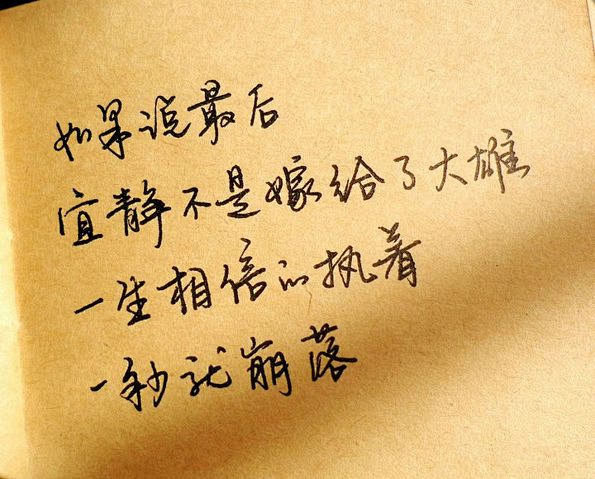 如果说最后
宜静不是嫁给了大雄
一生相信的执着
一秒就崩落